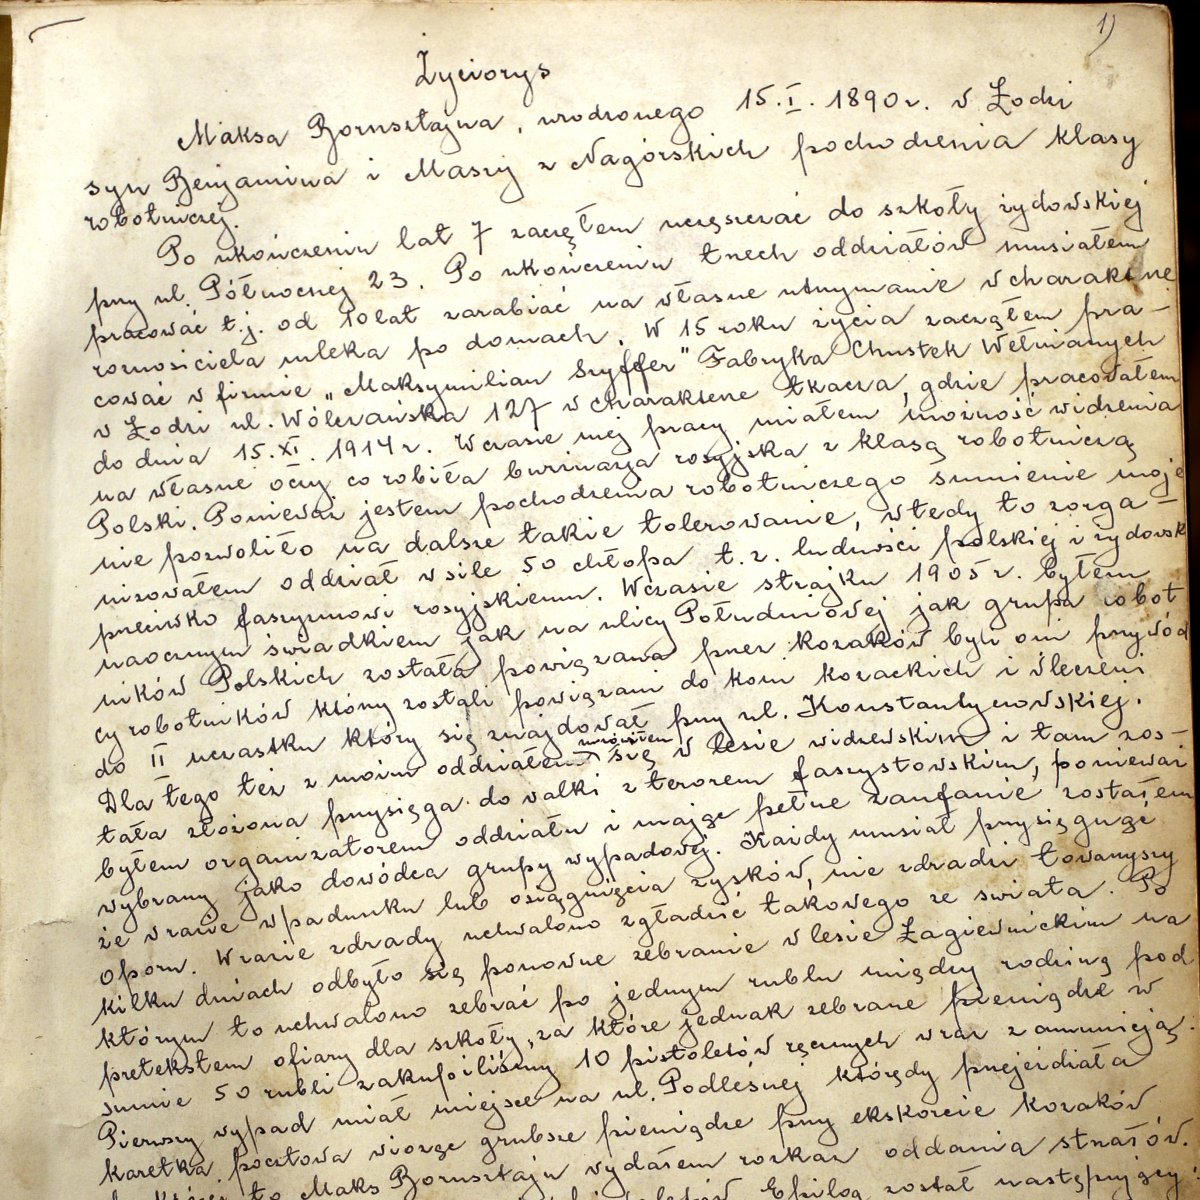 1)
Życiorys
Maksa Bornsztajna, urodzonego 15.I.1890r. w Łodzi
syn Benjamina i Maszy z Nagórskich pochodzenia klasy
robotniczej.
Po ukończeniu lat 7 zacząłem uczęszczać do szkoły żydowskiej
przy ul. Północnej 23. Po ukończeniu trzech oddziałów musiałem
pracować t.j. od 10 lat zarabiać na własne utrzymanie w charakterze
roznosiciela mleka po domach. W 15 roku życia zacząłem pra-
cować w firmie „Maksymilian Szyffer" Fabryka Chustek Wełnianych
w Łodzi ul. Wólczańska 127 w charakterze tkacza, gdzie pracowałem
do dnia 15.XI.1914r. Wczasie mej pracy miałem możność widzenia
na własne oczy co robiła burżuazja rosyjska z klasą robotniczą
Polski. Ponieważ jestem pochodzenia robotniczego sumienie moje
nie pozwoliło na dalsze takie tolerowanie, wtedy to zorga-
nizowałem oddział w sile 50 chłopa t.z. ludności polskiej i żydowsk
przeciwko faszyzmowi rosyjskiemu. Wczasie strajku 1905r. byłem
naocznym świadkiem jak na ulicy Południowej jak grupa robot
ników Polskich została powiązana przez kozaków byli oni przywód
cy robotników którzy zostali powiązani do koni kozackich i wleczeni
do II ucząstku który się znajdował przy ul. Konstantynowskiej.
Dla tego też z moim oddziałem umówiłem się w lesie widzewskim i tam zos-
tała złożona przysięga do walki z terorem faszystowskim, ponieważ
byłem organizatorem oddziału i mając pełne zaufanie zostałem
wybrany jako dowódca grupy wypadowej. Każdy musiał przysięgnąć
że w razie wpadunku lub osiągnięcia zysków, nie zdradzi towarzyszy
oporu. W razie zdrady uchwalono zgładzić takowego ze świata. Po
kilku dniach odbyło się ponowne zebranie w lesie Łagiewnickim na
którym to uchwalono zebrać po jednym rublu między rodziną pod
pretekstem ofiary dla szkoły, za które jednak zebrane pieniądze w
sumie 50 rubli zakupiliśmy 10 pistoletów ręcznych wraz z amunicją.
Pierwszy wypad miał miejsce na ul. Podleśnej którędy przejeżdżała
karetka pocztowa wioząc grubsze pieniądze przy eskorcie kozaków,
to Maks Bornsztajn wydałem rozkaz oddania strzałów.
Epilog został następujący: